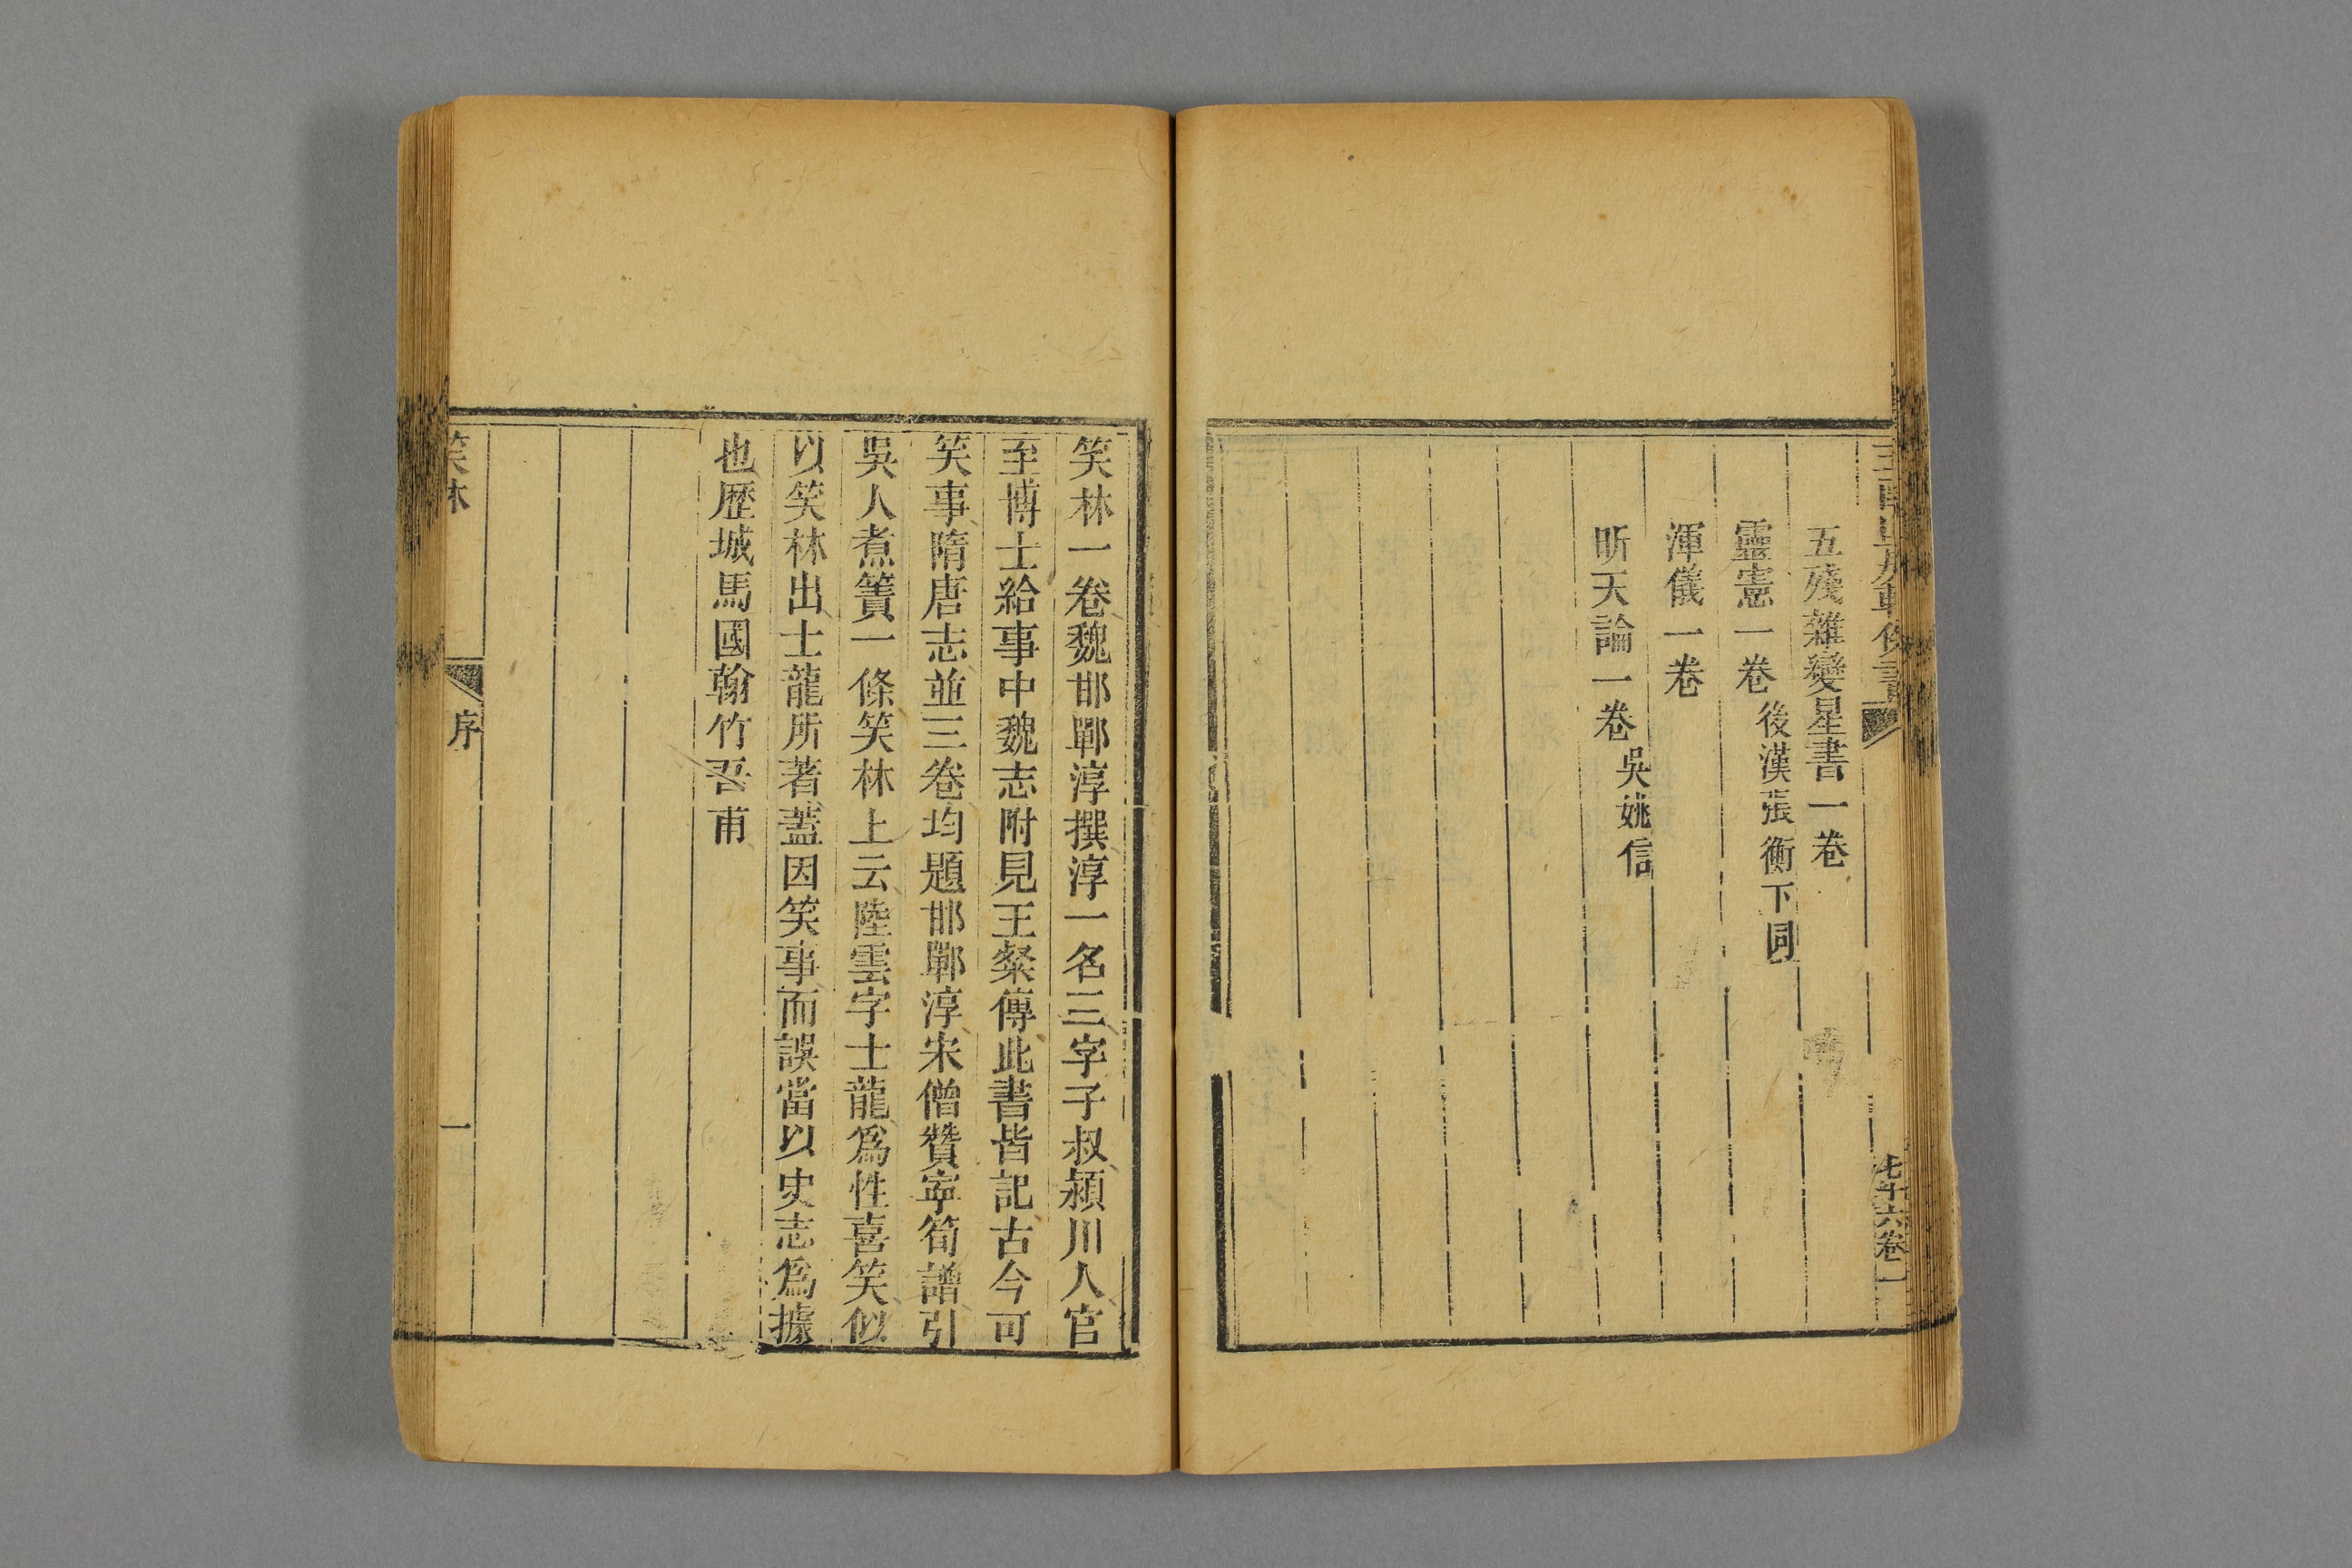 玉函山房輯佚書
七十六卷
一
五殘雜變星書一卷
靈憲一卷 後漢張衡下同
渾儀一卷
昕天論一卷 吳姚信
笑林一卷魏邯鄲淳撰淳一名三字子叔潁川人官
至博士給事中魏志附見王粲傳此書皆記古今可
笑事隋唐志並三卷均題邯鄲淳宋僧贊寧筍譜引
吳人煮簀一條笑林上云陸雲字士龍爲性喜笑似
以笑林出士龍所著蓋因笑事而誤當以史志爲據
也歷城馬國翰竹吾甫
笑林
序
一